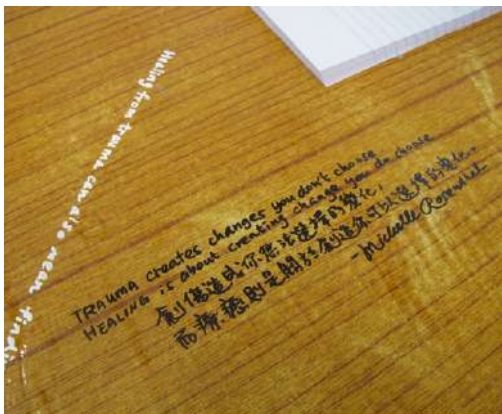 Healing from trauma can also mean findi
TRAUMA creates changes you don't choose
HEALING is about creating change you do choose
創傷造成你無法選擇的變化，
而療癒則是關於創造你可以選擇的變化。
-Michelle Rosenthal